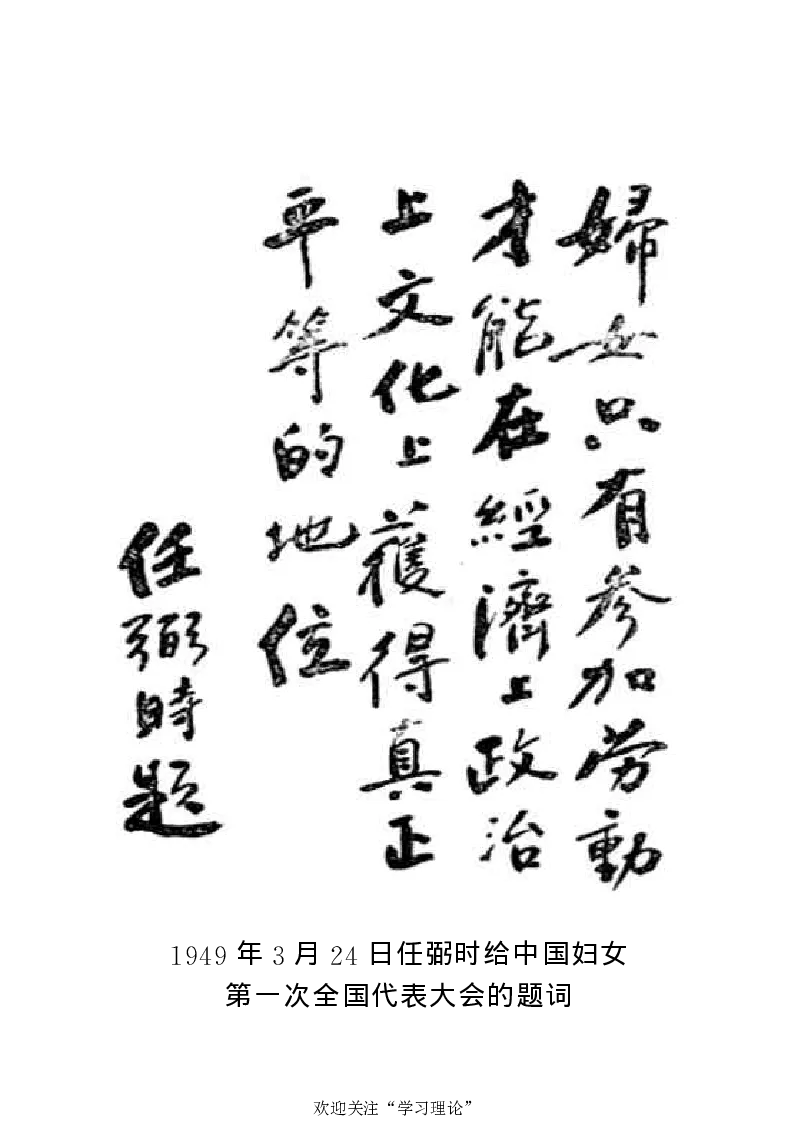 婦女只有参加劳動
才能在經濟上政治
上文化上獲得真正
平等的地位
任弼時題
1949年3月24日任弼时给中国妇女
第一次全国代表大会的题词
欢迎关注“学习理论”